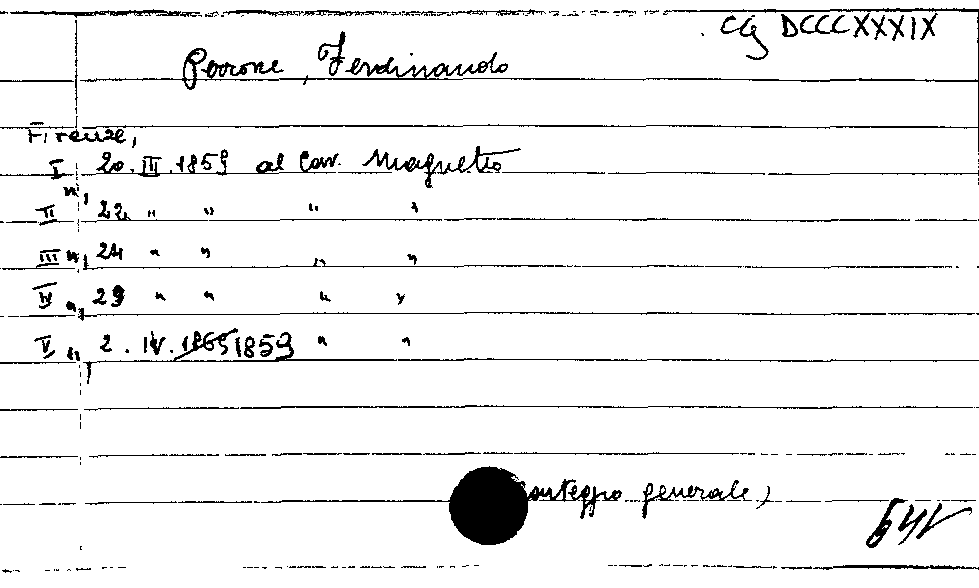 CG DCCCXXXIX
Perrone, Ferdinando
Firenze,
I 20.III.1859 al Cav. Magnetto
II ", 22 " " " "
III ", 24 " " " "
IV ", 29 " " " "
V ", 2.IV. 1865 1859 " "
generale)